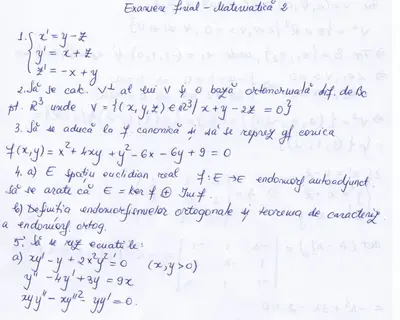 Examen final - Matematică 2
1. { x' = y - z
y' = x + z
z' = -x + y
2. Să se calc. V⊥ al lui V și o bază ortonormală dif. de Bc
pt. R³ unde V = {(x, y, z) ∈ R³ | x + y - 2z = 0}
3. Să se aducă la f canonică și să se reprez gf conica
f(x,y) = x² + 4xy + y² - 6x - 6y + 9 = 0
4. a) E spațiu euclidian real f: E → E endomorf autoadjunct.
Să se arate că E = ker f ⊕ Im f.
b) Definiția endomorfismelor ortogonale și teorema de caracteriz
a endomorf ortog.
5. Să se rez ecuațiile:
a) xy' - y + 2x²y² = 0 (x, y > 0)
y'' - 4y' + 3y = 9x
xyy'' - xy'² - yy' = 0.